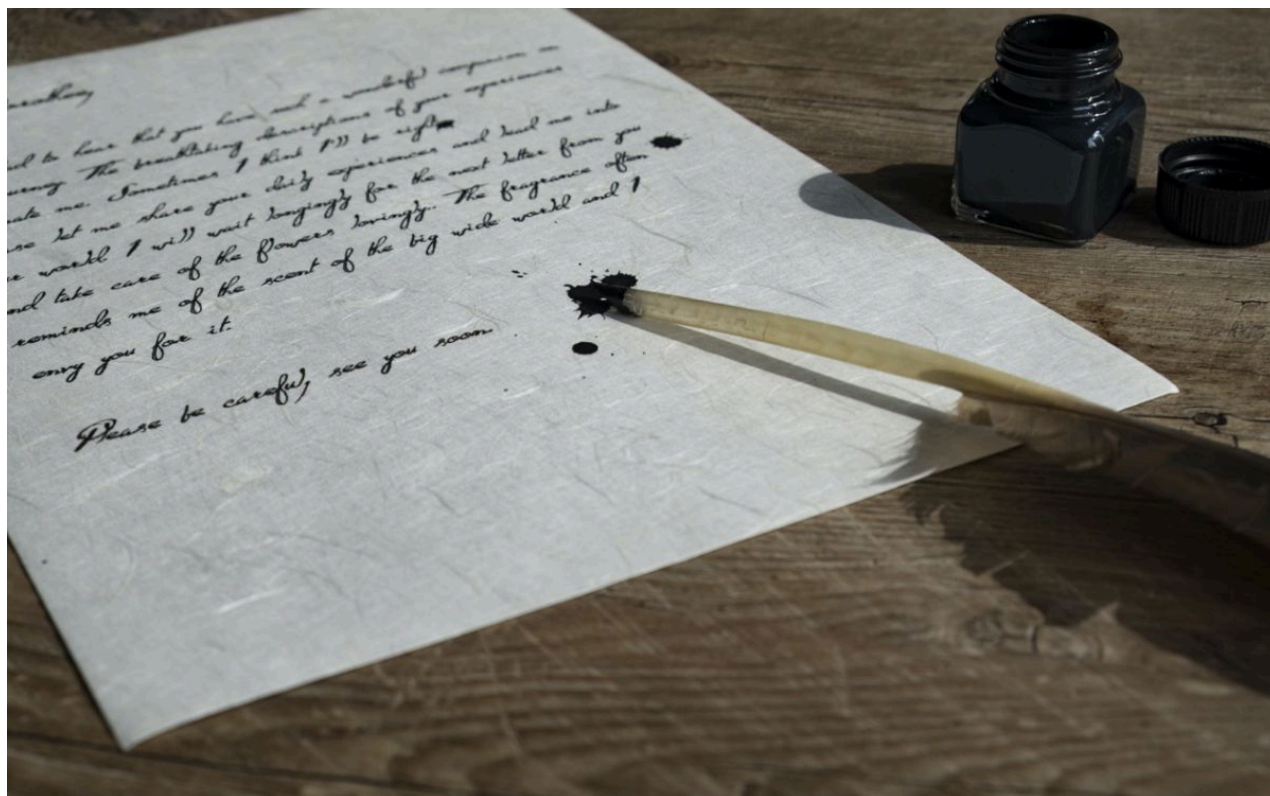 to hear that you have had a wonderful companion on
The breathtaking descriptions of your experiences
me. Sometimes I think I'll be right
let me share your daily experiences and lead me into
world I will wait longingly for the next letter from you
take care of the flowers lovingly. The fragrance often
reminds me of the scent of the big wide world and I
envy you for it.
Please be careful, see you soon